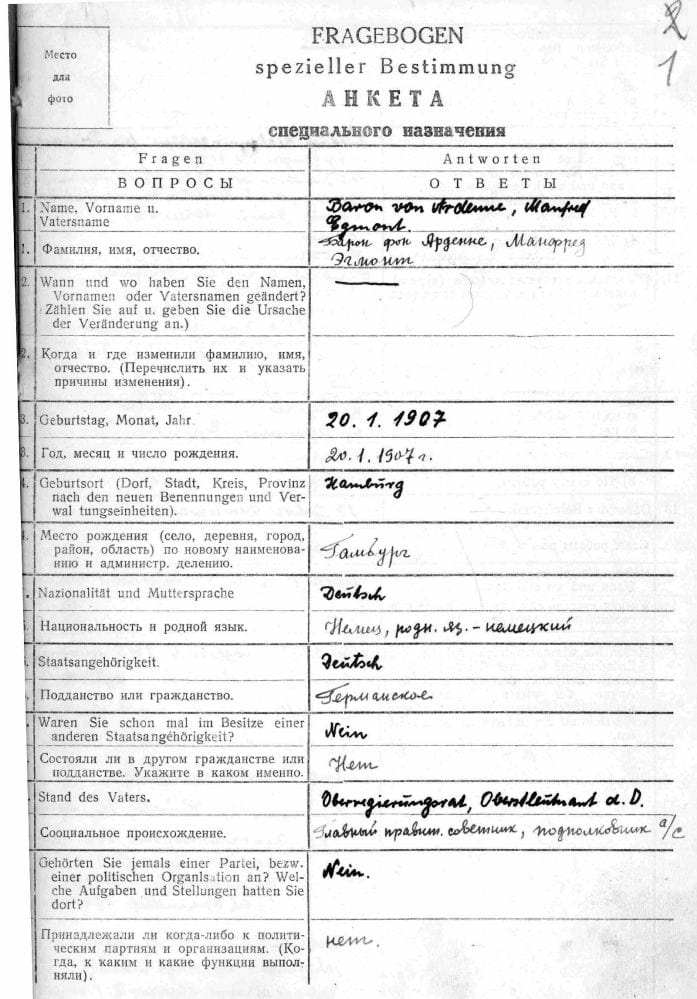 2
1
Место
для
фото
FRAGEBOGEN
spezieller Bestimmung
АНКЕТА
специального назначения
Fragen
Antworten
ВОПРОСЫ
ОТВЕТЫ
1. Name, Vorname u.
Vatersname
Baron von Ardenne, Manfred
Egmont.
1. Фамилия, имя, отчество.
Барон фон Арденне, Манфред
Эгмонт
2. Wann und wo haben Sie den Namen,
Vornamen oder Vatersnamen geändert?
Zählen Sie auf u. geben Sie die Ursache
der Veränderung an.)
2. Когда и где изменили фамилию, имя,
отчество. (Перечислить их и указать
причины изменения).
3. Geburtstag, Monat, Jahr
20. 1. 1907
3. Год, месяц и число рождения.
20. 1. 1907 г.
4. Geburtsort (Dorf, Stadt, Kreis, Provinz
nach den neuen Benennungen und Ver-
wal tungseinheiten).
Hamburg
4. Место рождения (село, деревня, город,
район, область) по новому наименова-
нию и администр. делению.
Гамбург
Nazionalität und Muttersprache
Deutsch
Национальность и родной язык.
Немец, родн. яз. - немецкий
Staatsangehörigkeit.
Deutsch
Подданство или гражданство.
Германское
Waren Sie schon mal im Besitze einer
anderen Staatsangéhörigkeit?
Nein
Состояли ли в другом гражданстве или
подданстве. Укажите в каком именно.
Нет
Stand des Vaters.
Oberregierungsrat, Oberstleutnant a. D.
Сооциальное происхождение.
Главный правит. советник, подполковник
Gehörten Sie jemals einer Partei, bezw.
einer politischen Organisation an? Wel-
che Aufgaben und Stellungen hatten Sie
dort?
Nein.
Принадлежали ли когда-либо к полити-
ческим партиям и организациям. (Ко-
гда, к каким и какие функции выпол-
няли).
нет.